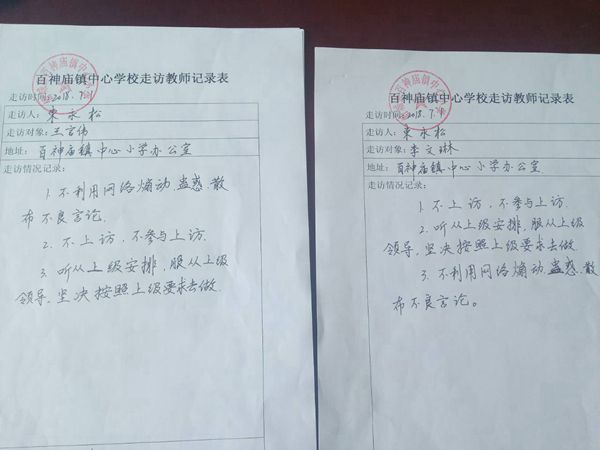 百神庙镇中心学校走访教师记录表
走访时间:2018.7.
走访人: 束永松
走访对象: 王宫伟
地址: 百神庙镇中心小学办公室
走访情况记录:
1. 不利用网络煽动.蛊惑.散
布不良言论.
2. 不上访,不参与上访.
3. 听从上级安排,服从上级
领导.坚决按照上级要求去做.
百神庙镇中心学校走访教师记录表
走访时间:2018.7.
走访人: 束永松
走访对象: 李文琳
地址: 百神庙镇中心小学办公室
走访情况记录:
1. 不上访,不参与上访.
2. 听从上级安排,服从上级
领导.坚决按照上级要求去做.
3. 不利用网络煽动.蛊惑.散
布不良言论。